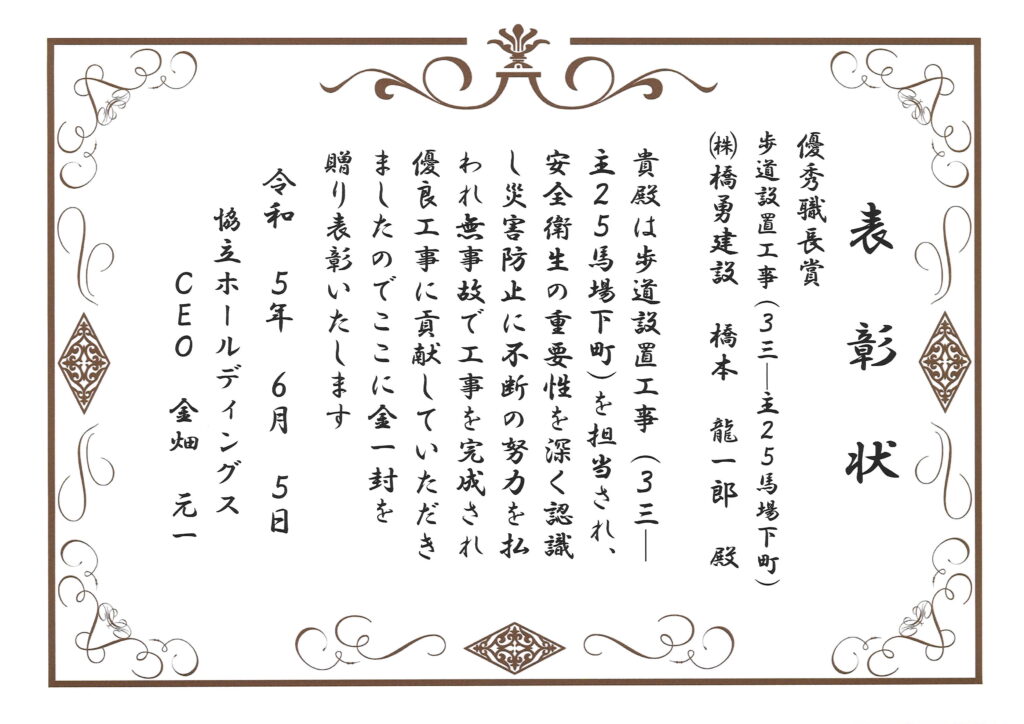 表彰状
優秀職長賞
歩道設置工事(3三―主25馬場下町)
㈱橋勇建設 橋本 龍一郎 殿
貴殿は歩道設置工事(3三―
主25馬場下町)を担当され、
安全衛生の重要性を深く認識
し災害防止に不断の努力を払
われ無事故で工事を完成され
優良工事に貢献していただき
ましたのでここに金一封を
贈り表彰いたします
令和 5年 6月 5日
協立ホールディングス
CEO 金畑 元一